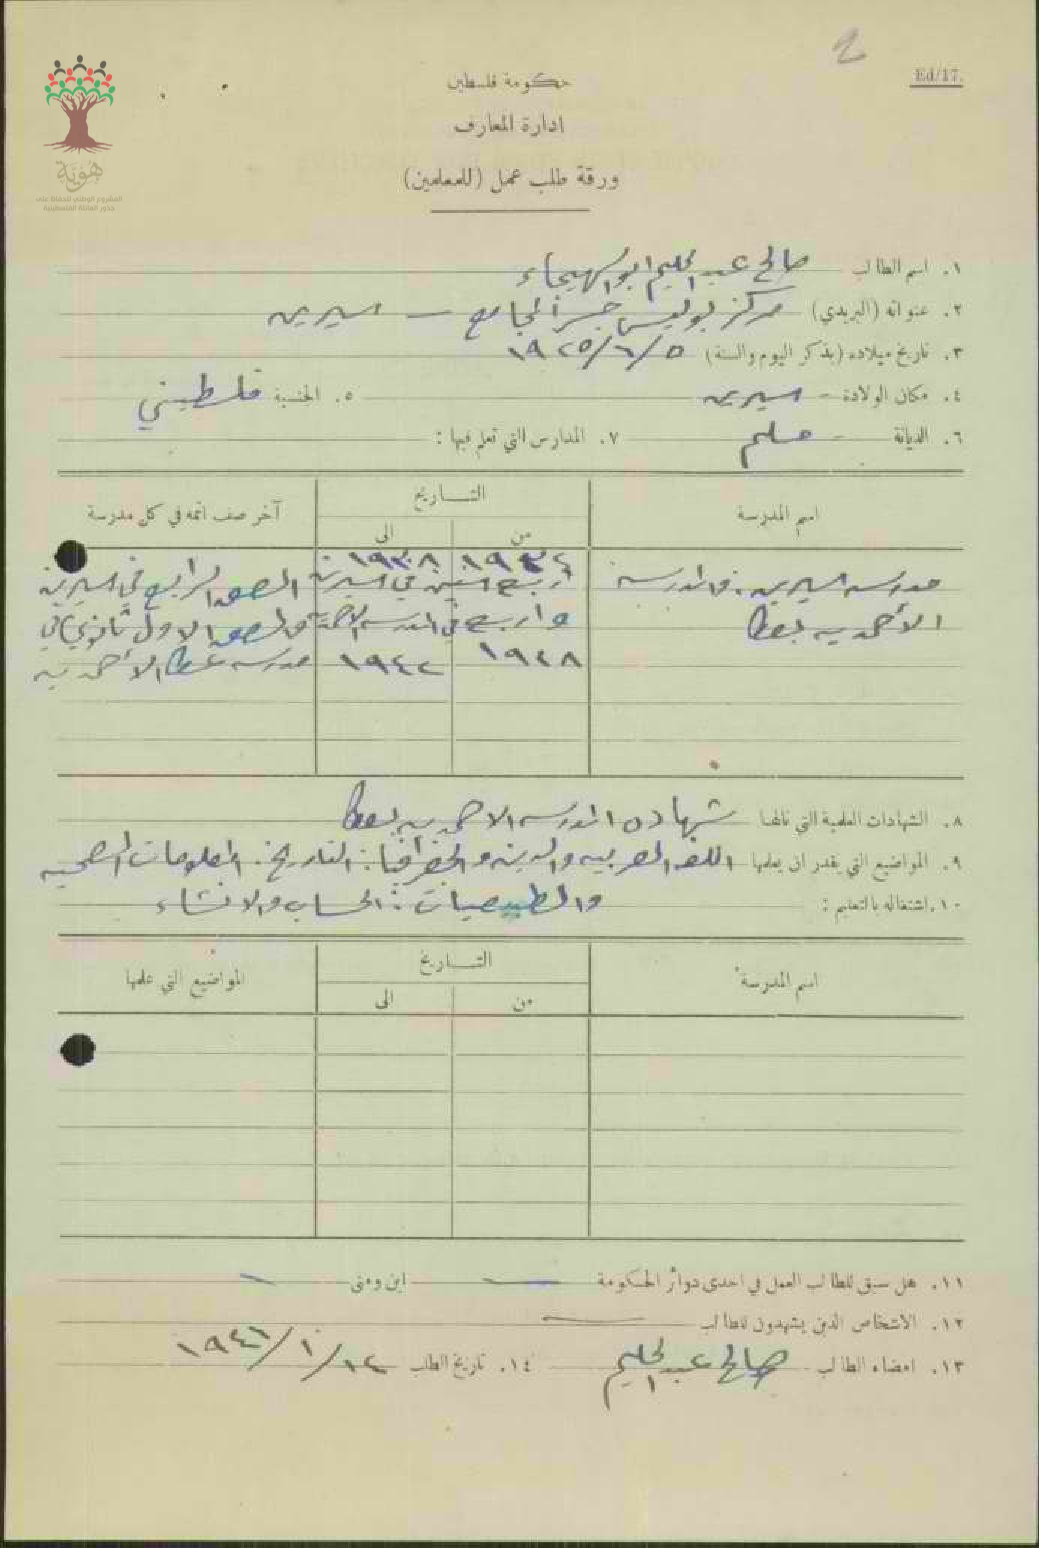 2
Ed/17.
حكومة فلسطين
ادارة المعارف
ورقة طلب عمل (للمعلمين)
هَوِيَّة
المشروع الوطني للحفاظ على
جذور العائلة الفلسطينية
١. اسم الطالب صالح عبد الحليم ابو الهيجاء
٢. عنوانه (البريدي) مركز بوليس جسر المجامع - سيرين
٣. تاريخ ميلاده (بذكر اليوم والسنة) ٥/٦/١٩٢٥
٤. مكان الولادة - سيرين ٥. الجنسية فلسطيني
٦. الديانة - مسلم ٧. المدارس التي تعلم فيها :
اسم المدرسة التاريخ آخر صف اتمه في كل مدرسة
من الى
١٩٣٤ ١٩٣٨
مدرسة سيرين . والمدرسة اربع سنين في سيرين الصف الرابع في سيرين
الأحمدية بعكا واربع في المدرسة الاحمدية والصف الاول ثانوي في
١٩٣٨ ١٩٤٢ مدرسة عكا الأحمدية
٨. الشهادات العلمية التي نالها شهادة المدرسة الاحمدية بعكا
٩. المواضيع التي يقدر ان يعلمها اللغة العربية والدين والجغرافيا . التاريخ . المعلومات الصحية
والطبيعيات : الحساب والانشاء
١٠. اشتغاله بالتعليم :
اسم المدرسة التاريخ المواضيع التي علمها
من الى
١١. هل سبق للطالب العمل في احدى دوائر الحكومة — اين ومتى —
١٢. الاشخاص الذين يشهدون للطالب —
١٣. امضاء الطالب صالح عبد الحليم ١٤. تاريخ الطلب ١٢/١٠/١٩٤٦